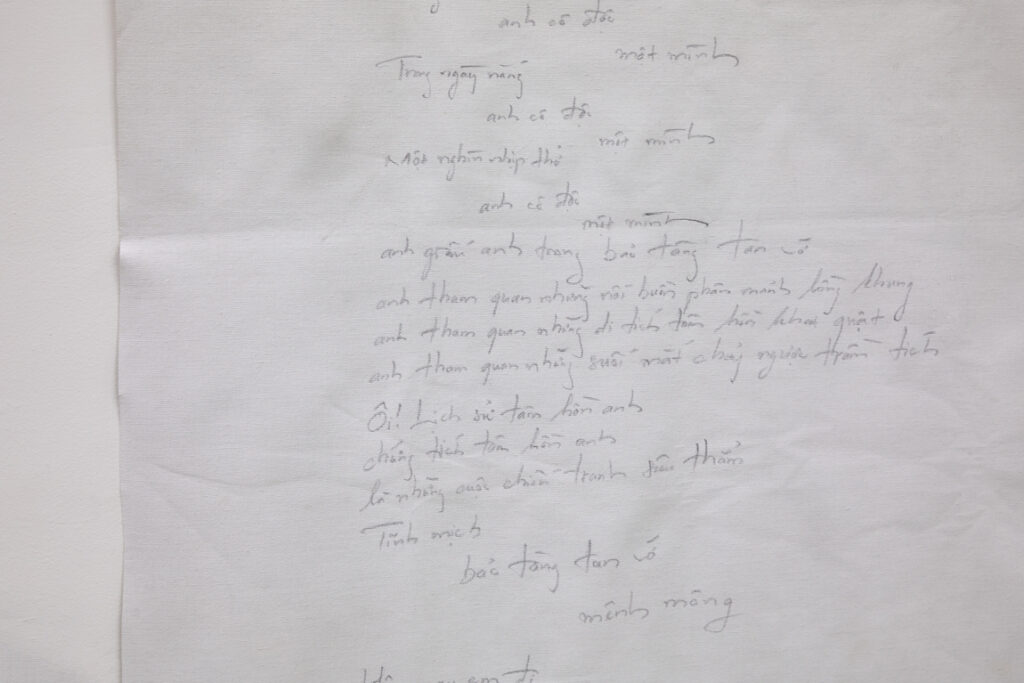 anh cô độc
một mình
Trong ngày nắng
anh cô độc
một mình
Một nghìn nhịp thở
anh cô độc
một mình
anh giấu anh trong bảo tàng tan vỡ
anh tham quan những nỗi buồn phân mảnh lồng khung
anh tham quan những di tích tâm hồn khai quật
anh tham quan những suối mắt chảy ngược trầm tích
Ôi! Lịch sử tâm hồn anh
chứng tích tâm hồn anh
là những cuộc chiến tranh sâu thẳm
Tĩnh mịch
bảo tàng tan vỡ
mênh mông
em đi